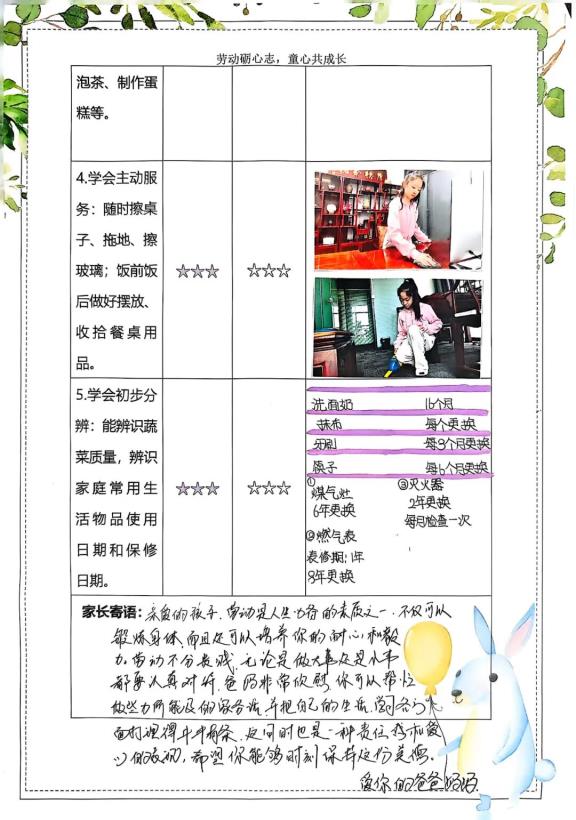 劳动砺心志，童心共成长
泡茶、制作蛋
糕等。
4.学会主动服
务：随时擦桌
子、拖地、擦
玻璃；饭前饭
后做好摆放、
收拾餐桌用
品。
☆☆☆
☆☆☆
5.学会初步分
辨：能辨识蔬
菜质量，辨识
家庭常用生
活物品使用
日期和保修
日期。
☆☆☆
☆☆☆
洗面奶 16个月
抹布 每个更换
牙刷 每3个月更换
筷子 每6个月更换
①
煤气灶
6年更换
②燃气表
表修期：1年
8年更换
③灭火器
2年更换
每月检查一次
家长寄语：亲爱的孩子，劳动是人生必备的素质之一，不仅可以
锻炼身体，而且还可以培养你的耐心和毅
力。劳动不分贵贱，无论是做大事还是小事
都要认真对待，爸妈非常欣慰，你可以帮忙
做些力所能及的家务活，并把自己的生活、学习
打理得井井有条，这同时也是一种责任
的表现，希望你能够时刻保持这份美德。
爱你的爸爸妈妈